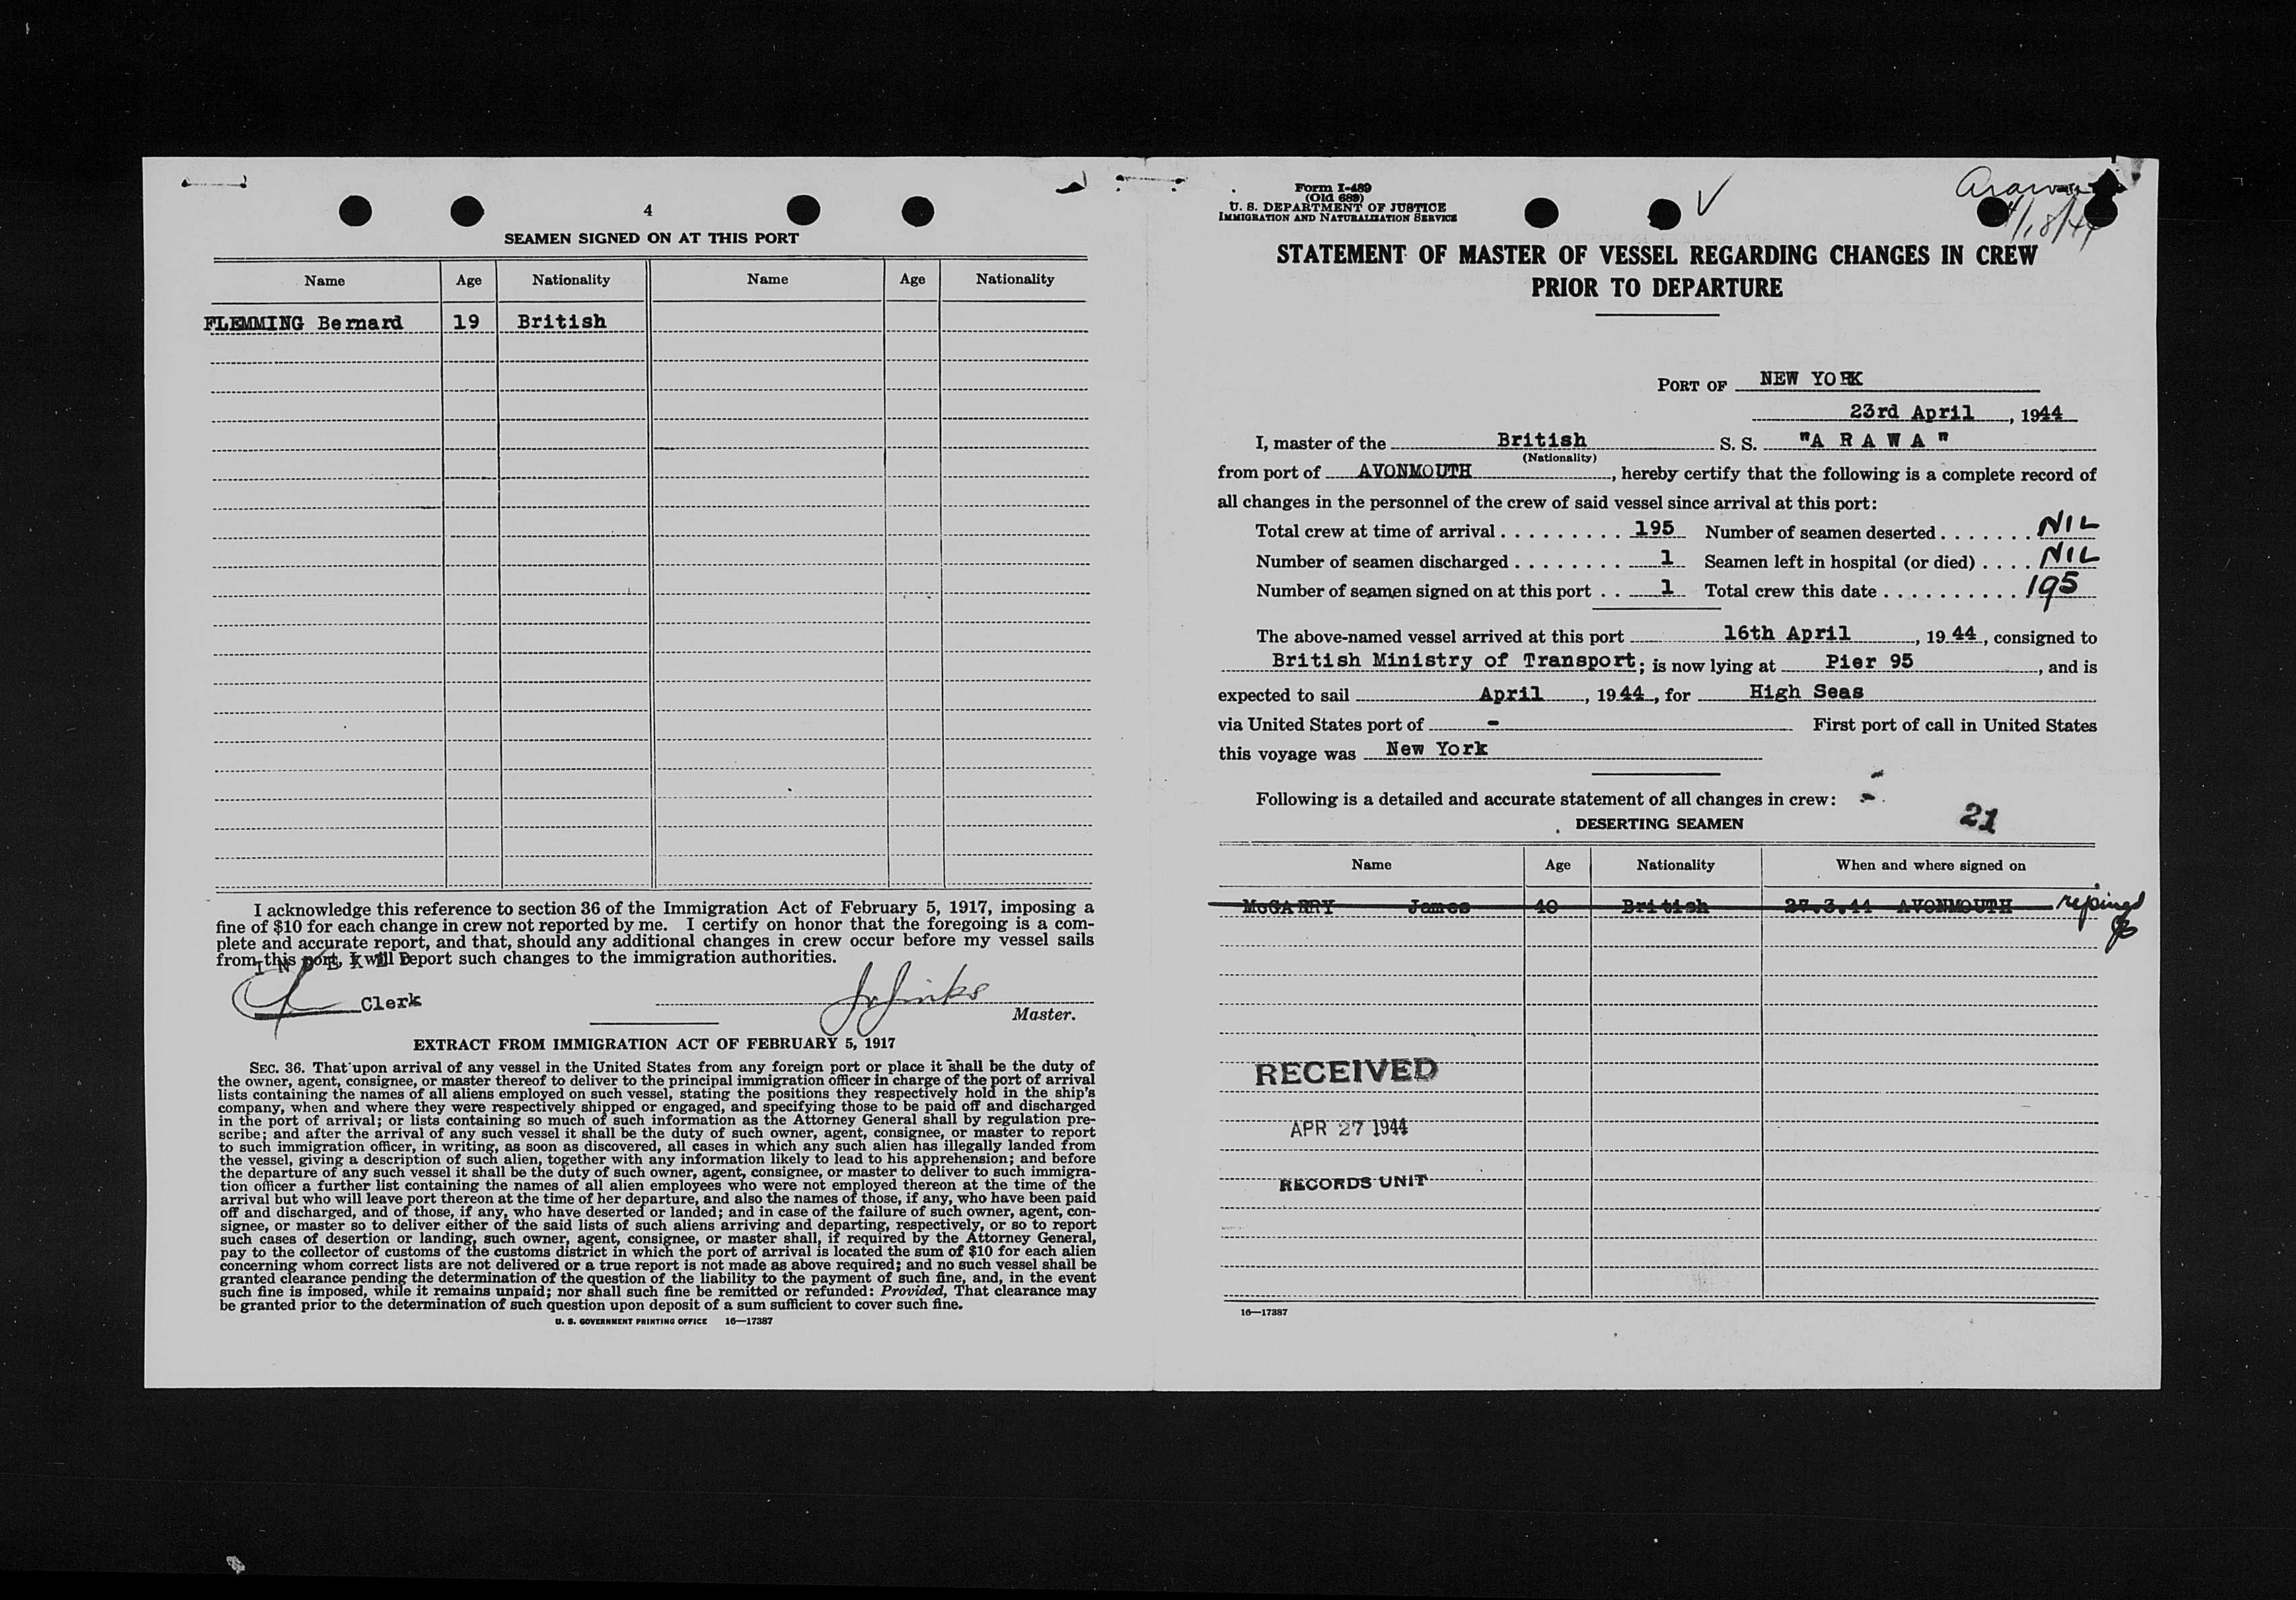 4
SEAMEN SIGNED ON AT THIS PORT
Name Age Nationality Name Age Nationality
FLEMMING Bernard 19 British
I acknowledge this reference to section 36 of the Immigration Act of February 5, 1917, imposing a
fine of $10 for each change in crew not reported by me. I certify on honor that the foregoing is a com-
plete and accurate report, and that, should any additional changes in crew occur before my vessel sails
from this port, I will report such changes to the immigration authorities.
INDEXED
Clerk
Master.
EXTRACT FROM IMMIGRATION ACT OF FEBRUARY 5, 1917
SEC. 36. That upon arrival of any vessel in the United States from any foreign port or place it shall be the duty of
the owner, agent, consignee, or master thereof to deliver to the principal immigration officer in charge of the port of arrival
lists containing the names of all aliens employed on such vessel, stating the positions they respectively hold in the ship's
company, when and where they were respectively shipped or engaged, and specifying those to be paid off and discharged
in the port of arrival; or lists containing so much of such information as the Attorney General shall by regulation pre-
scribe; and after the arrival of any such vessel it shall be the duty of such owner, agent, consignee, or master to report
to such immigration officer, in writing, as soon as discovered, all cases in which any such alien has illegally landed from
the vessel, giving a description of such alien, together with any information likely to lead to his apprehension; and before
the departure of any such vessel it shall be the duty of such owner, agent, consignee, or master to deliver to such immigra-
tion officer a further list containing the names of all alien employees who were not employed thereon at the time of the
arrival but who will leave port thereon at the time of her departure, and also the names of those, if any, who have been paid
off and discharged, and of those, if any, who have deserted or landed; and in case of the failure of such owner, agent, con-
signee, or master so to deliver either of the said lists of such aliens arriving and departing, respectively, or so to report
such cases of desertion or landing, such owner, agent, consignee, or master shall, if required by the Attorney General,
pay to the collector of customs of the customs district in which the port of arrival is located the sum of $10 for each alien
concerning whom correct lists are not delivered or a true report is not made as above required; and no such vessel shall be
granted clearance pending the determination of the question of the liability to the payment of such fine, and, in the event
such fine is imposed, while it remains unpaid; nor shall such fine be remitted or refunded: Provided, That clearance may
be granted prior to the determination of such question upon deposit of a sum sufficient to cover such fine.
U. S. GOVERNMENT PRINTING OFFICE 16—17387
Form I-489
(Old 689)
U. S. DEPARTMENT OF JUSTICE
IMMIGRATION AND NATURALIZATION SERVICE
Arawa
4/18/44
STATEMENT OF MASTER OF VESSEL REGARDING CHANGES IN CREW
PRIOR TO DEPARTURE
PORT OF NEW YORK
23rd April, 1944
I, master of the British S. S. "A R A W A"
(Nationality)
from port of AVONMOUTH, hereby certify that the following is a complete record of
all changes in the personnel of the crew of said vessel since arrival at this port:
Total crew at time of arrival . . . . . . . . . 195 Number of seamen deserted . . . . . . . NIL
Number of seamen discharged . . . . . . . . 1 Seamen left in hospital (or died) . . . . NIL
Number of seamen signed on at this port . . 1 Total crew this date . . . . . . . . . . 195
The above-named vessel arrived at this port 16th April, 1944, consigned to
British Ministry of Transport; is now lying at Pier 95, and is
expected to sail April, 1944, for High Seas
via United States port of - First port of call in United States
this voyage was New York
Following is a detailed and accurate statement of all changes in crew: -
21
DESERTING SEAMEN
Name Age Nationality When and where signed on
McGARRY James 40 British 27.3.44 AVONMOUTH rejoined
RECEIVED
APR 27 1944
RECORDS UNIT
16—17387